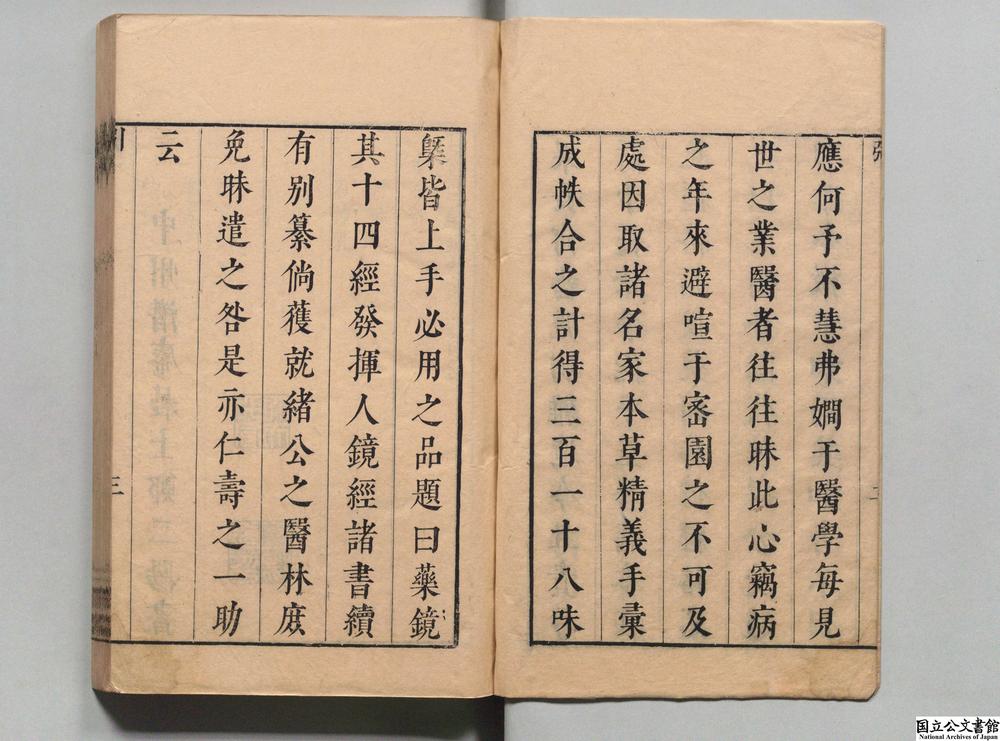 應何予不慧弗嫺于醫學每見
世之業醫者往往昧此心竊病
之年來避喧于宻園之不可及
處因取諸名家本草精義手彙
成帙合之計得三百一十八味
槩皆上手必用之品題曰藥鏡
其十四經發揮人鏡經諸書續
有别纂倘獲就緒公之醫林庶
免昧遣之咎是亦仁壽之一助
云
引
三
国立公文書館
National Archives of Japan